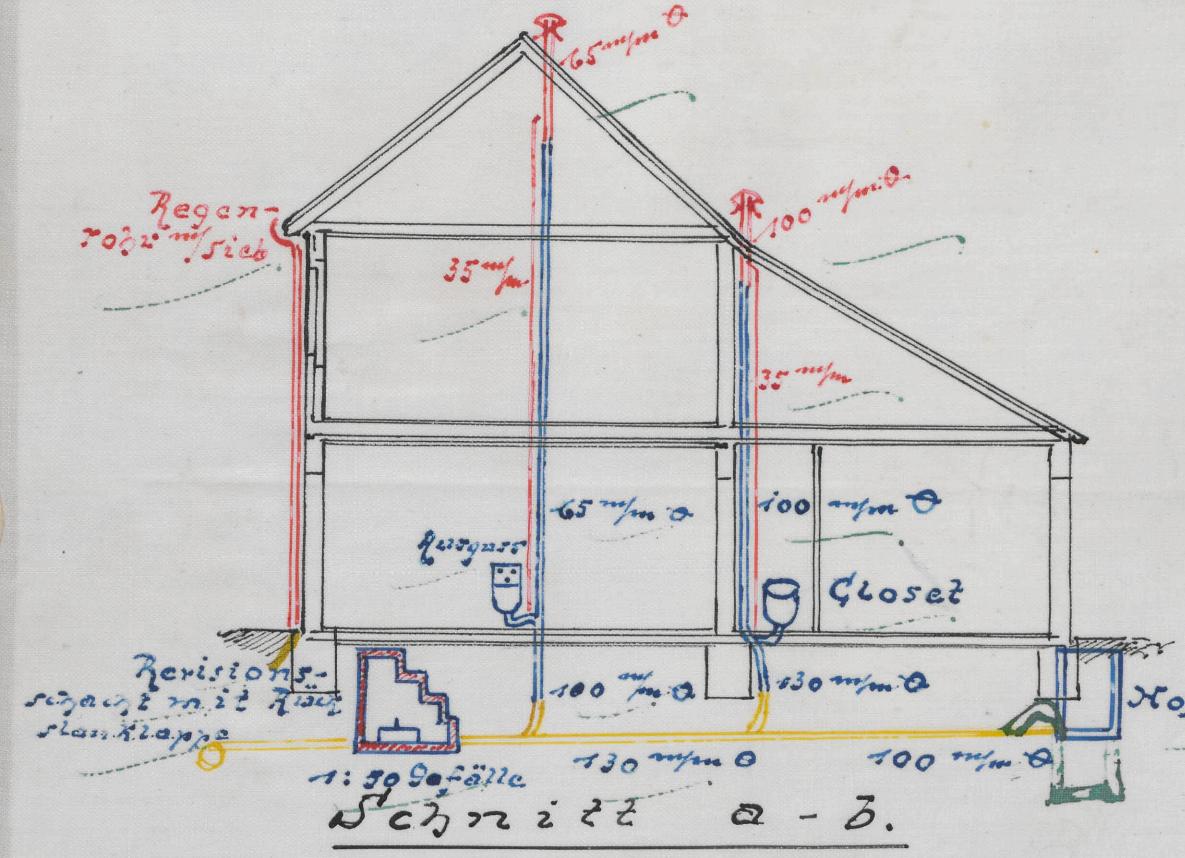 65 m/m Ø
100 m/m Ø
Regen-
rohr m/Sieb
35 m/m
35 m/m
65 m/m Ø
100 m/m Ø
Ausguss
Closet
Revisions-
schacht mit Rück
stauklappe
100 m/m Ø
130 m/m Ø
Ho
1:50 Gefälle
130 m/m Ø
100 m/m Ø
Schnitt a-b.